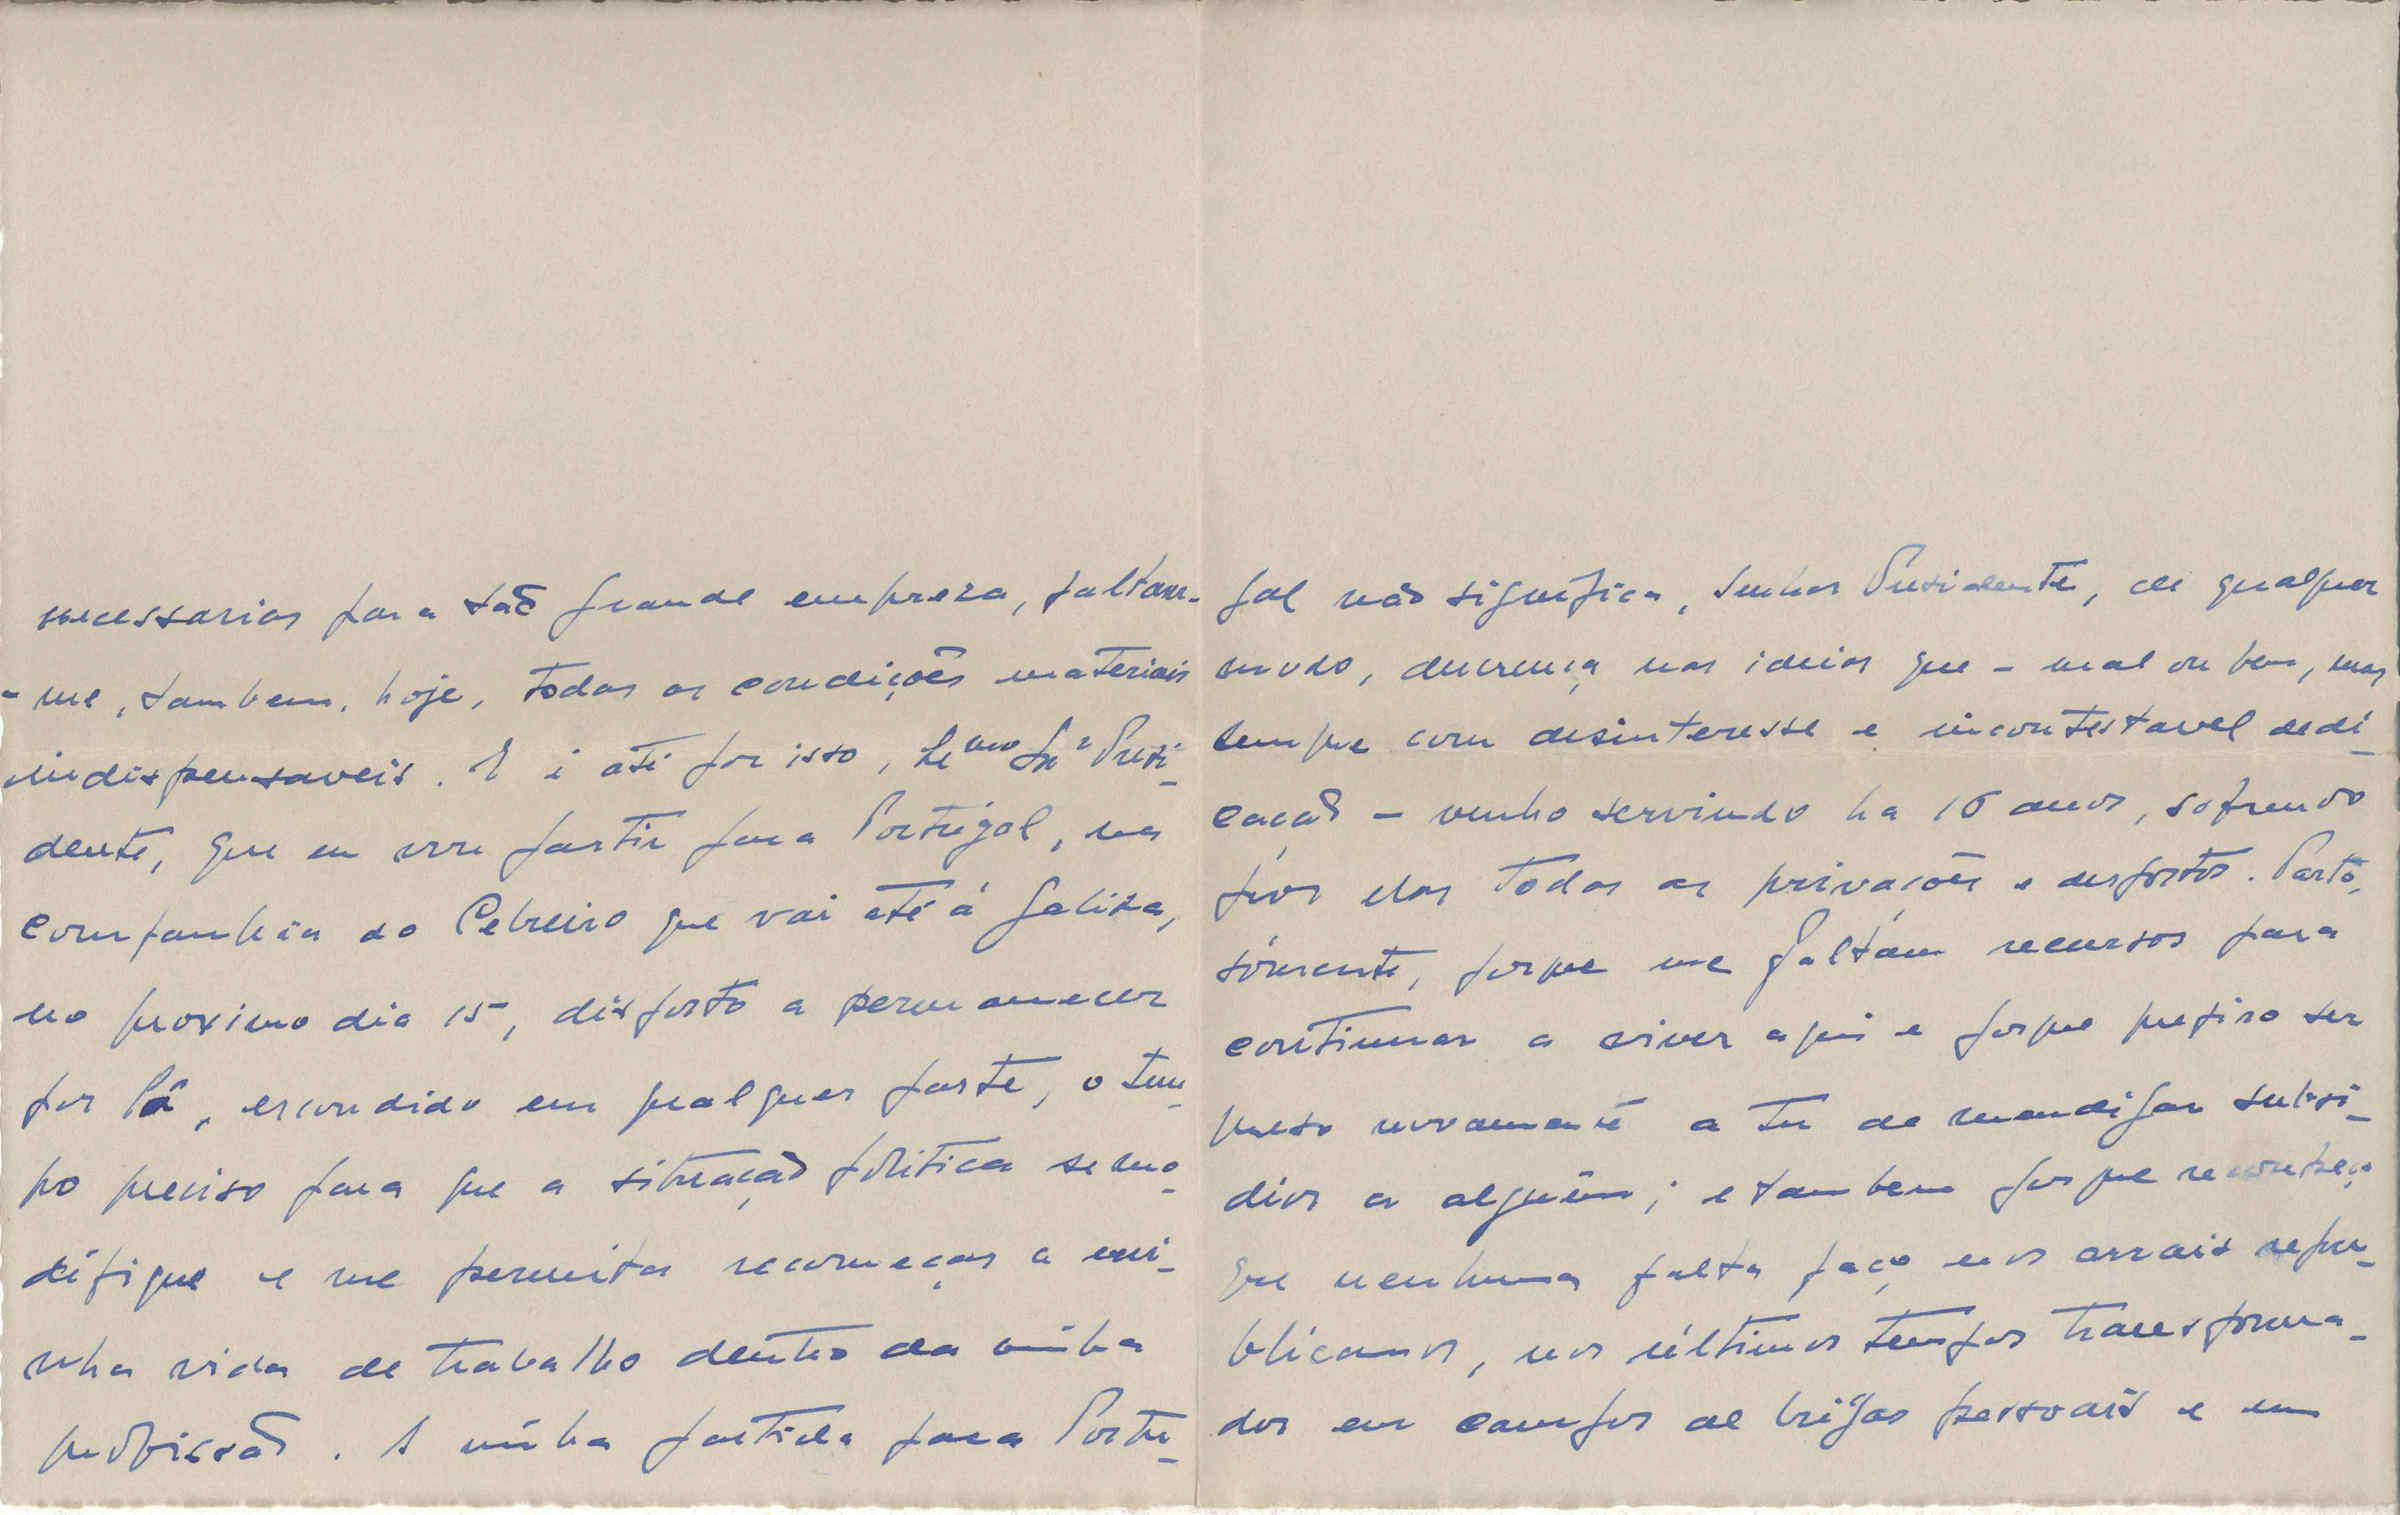 necessarias para tão grande empreza, faltam-
-me, tambem, hoje, todas as condições materiais
indispensaveis. E é até por isso, Exmo Snr Presi-
dente, que eu vou partir para Portugal, na
companhia do Cebreiro que vai até á Galiza,
no proximo dia 15, disposto a permanecer
por lá, escondido em qualquer parte, o tem-
po preciso para que a situação politica se mo-
difique e me permita recomeçar a mi-
nha vida de trabalho dentro da minha
profissão. A minha partida para Portu-
gal não significa, Senhor Presidente, de qualquer
modo, descrença nas ideias que - mal ou bem, mas
sempre com desinteresse e incontestavel dedi-
cação - venho servindo ha 16 anos, sofrendo
por elas todas as privações e desgostos. Parto,
sómente, porque me faltam recursos para
continuar a viver aqui e porque prefiro ser
preso novamente a ter de mendigar subsi-
dios a alguém; e tambem porque reconheço
que nenhuma falta faço nos arrais repu-
blicanos, nos últimos tempos transforma-
dos em campos de brigas pessoais e em